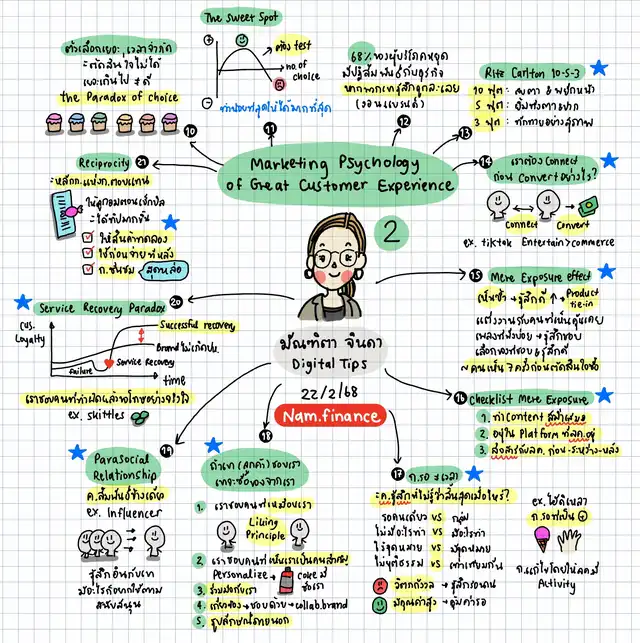 Marketing Psychology
of Great Customer Experience
2
มัณฑิตา จินดา
Digital Tips
22/2/68
Nam.finance
10
ตัวเลือกเยอะ, เวลาจำกัด
= ตัดสินใจไม่ได้
เยอะเกินไป ≠ ดี
the Paradox of choice
11
The Sweet Spot
+
ต้อง test
no. of
choice
-
12
68% ของผู้บริโภคหยุด
มีปฏิสัมพันธ์กับธุรกิจ
หากพวกเขารู้สึกถูกละเลย
13
Ritz Carlton 10-5-3
10 ฟุต : สบตา & พยักหน้า
5 ฟุต :
3 ฟุต : ทักทายอย่างสุภาพ
14
เราต้อง Connect
ก่อน Convert อย่างไร?
Connect
Convert
ex. tiktok Entertain > commerce
15
Mere Exposure effect
เห็นซ้ำ → รู้สึกดี ↑ → Product
tie-in
แต่งงานกับคนที่เห็นคุ้นเคย
เพลงที่ฟังบ่อย → รู้สึกชอบ
~ คนเห็น 7 ครั้งก่อนตัดสินใจซื้อ
16
Checklist Mere Exposure
1. ทำ Content สม่ำเสมอ
2. อยู่ใน Platform ที่ลค.อยู่
3. สื่อสารกับลค. ก่อน-ระหว่าง-หลัง
17
ก.รอ & เวลา
= ค.รู้สึกที่ไม่รู้ว่าสิ้นสุดเมื่อไหร่?
รอคนเดียว VS กลุ่ม
ไม่มีอะไรทำ VS มีอะไรทำ
ไร้จุดหมาย VS มีจุดหมาย
ไม่ยุติธรรม VS เท่าเทียมกัน
วิตกกังวล → รู้สึกรอนาน
มีคุณค่าสูง → คุ้มค่ารอ
ก.รอที่เป็น +
ก.แก้ไขโดยให้ลคมี
Activity
18
ถ้าเขา (ลูกค้า) ชอบเรา
เขาจะซื้อของจากเรา
1. เราชอบคนที่เหมือนเรา
Liking
Principle
2. เราชอบคนที่เห็นเราเป็นคนสำคัญ
Personalize → Coke มี
ชื่อเรา
3. ร่วมมือกับเรา
4. เกี่ยวข้อง → ชอบด้วย → collab.brand
5. รูปลักษณ์ภายนอก
19
Parasocial
Relationship
ค.สัมพันธ์ข้างเดียว
ex. Influencer
รู้สึกอินกับเขา
สนับสนุน
20
Service Recovery Paradox
Cus.
Loyalty
Successful recovery
Service Recovery
failure
time
ex. skittles
21
Reciprocity
= หลักก.แห่งก.ตอบแทน
ให้ลูกอมตอนเช็กบิล
= ได้ทิปมากขึ้น
ให้สินค้าทดลอง
ใช้ก่อนจ่ายทีหลัง
ก.ชื่นชม